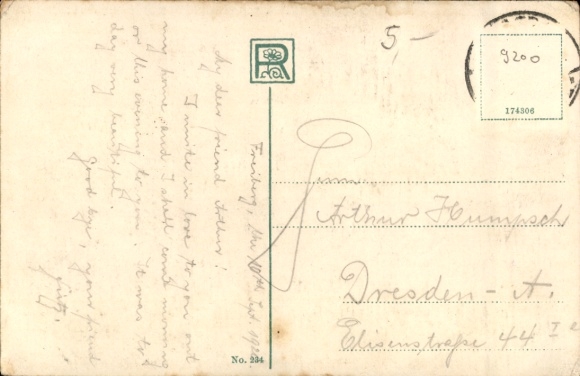 Freiberg, the 10th Jul. 192
My deer friend Arthur!
I invite in love to you out
my home and I shall come morning
or this evening to you. It was to
day very beautiful.
Good bye, your friend
Fritz.
R
No. 234
5,-
9200
174306
Arthur Humpsch
Dresden-A.
Elisenstraße 44 I